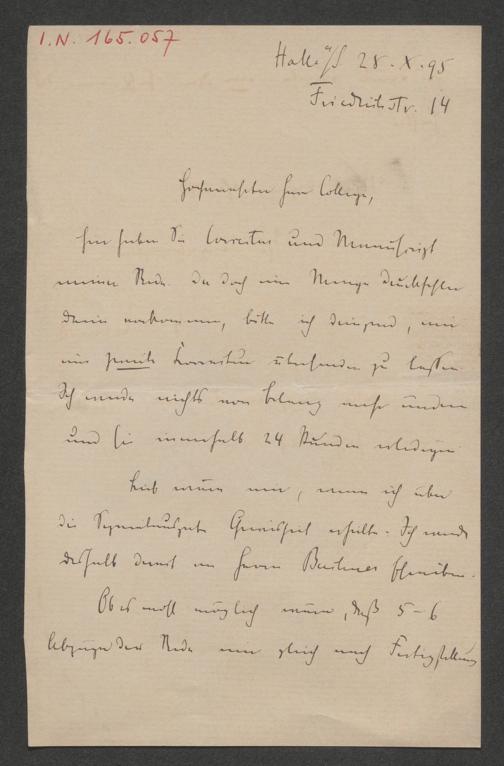 I.N. 165.057
Halle a/S 28.X.95
Friedrichstr. 14
Hochverehrter Herr College,
hier haben Sie Correctur und Manuscript
meiner Rede. Da doch eine Menge Druckfehler
darin vorkommen, bitte ich dringend, mir
eine zweite Korrektur übersenden zu lassen.
Ich werde nichts von Belang mehr ändern
und sie innerhalb 24 Stunden erledigen.
Lieb wäre mir, wenn ich über
die Separatausgabe Gewissheit erhielte. Ich werde
deshalb direct an Herrn schreiben.
Ob es wohl möglich wäre, daß 5–6
Abzüge der Rede mir gleich nach Fertigstellung